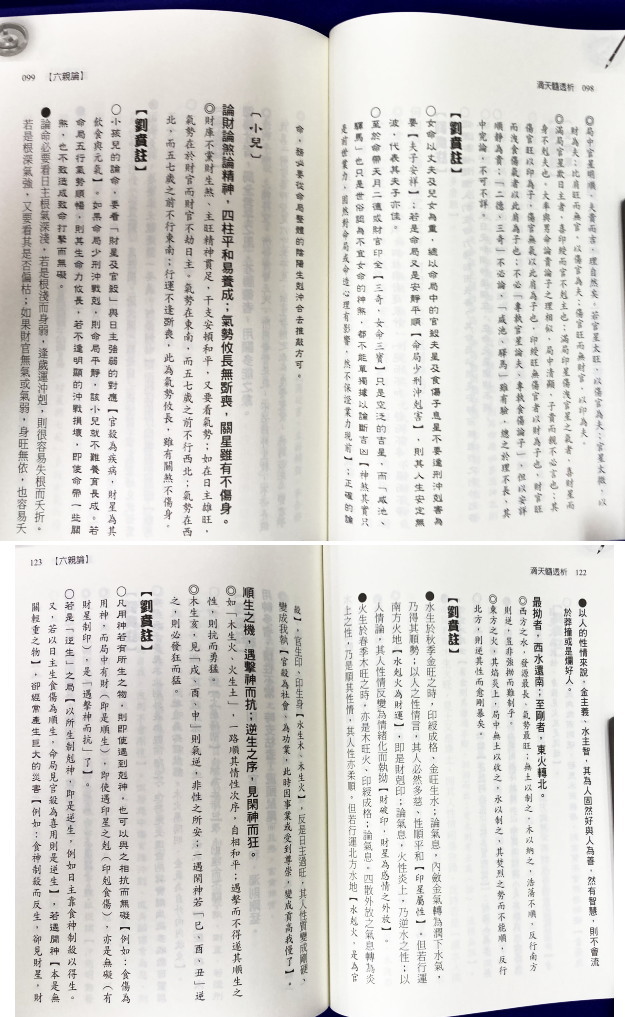 滴天髓透析 098
◎局中官星明順,夫貴而吉,理自然矣。若官星太旺,以傷官為夫;官星太微,以
財為夫;比肩旺而無官,以傷官為夫;傷官旺而無財官,以印為夫。
◎滿局官星欺日主者,喜印綬而官不剋主也;滿局印星傷洩官星之氣者,喜財星而
身不剋夫也。大率與男命論貴論子之理相似,局中清顯,子貴而親不必言也;其
【劉賁註】
◎女命以丈夫及兒女為重,總以命局中的官殺夫星及食傷子息星不要逢刑沖剋害為
要【夫子安祥】;若是命局又是安靜平順【命局少刑沖剋害】,則其人生安定無
波,代表其夫子亦佳。
◎至於命帶天月二德或財官印全【三奇,女命三寶】只是空泛的吉星,而「咸池、
驛馬」也只是世俗認為不宜女命的神煞,都不能單獨據以論斷吉凶【神煞其實只
099 【六親論】
命,務必要從命局整體的陰陽生剋沖合去推敲方可。
〔小兒〕
論財論煞論精神,四柱平和易養成;氣勢攸長無斲喪,關星雖有不傷身。
◎財庫不黨財生煞、主旺精神貫足,干支安頓和平,又要看氣勢;如在日主雄旺,
氣勢在於財官而財官不劫日主。氣勢在東南,而五七歲之前不行西北;氣勢在西
北,而五七歲之前不行東南;行運不逢斲喪,此為氣勢攸長,雖有關煞不傷身。
【劉賁註】
◎小孩兒的論命,要看「財星及官殺」與日主強弱的對應【官殺為疾病,財星為其
飲食與元氣】。如果命局少刑沖戰剋,則命局平靜,該小兒就不難養育長成。若
命局五行氣勢順暢,則其生命力攸長,若不逢明顯的沖戰損壞,即使命帶一些關
煞,也不致造成致命打擊而無礙。
●論命必要看日主根氣深淺,若是根淺而身弱,逢歲運沖剋,則很容易失根而夭折。
若是根深氣強,又要看其是否偏枯;如果財官無氣或氣弱,身旺無依,也容易夭
滴天髓透析 122
●以人的性情來說,金主義、水主智,其為人固然好與人為善,然有智慧,則不會流
於莽撞或是爛好人。
最拗者,西水還南;至剛者,東火轉北。
◎西方之水,發源最長、氣勢最旺;無土以制之、木以納之,浩蕩不順,反行南方
則逆,豈非強拗而難制乎。
◎東方之火,其焰炎上,局中無土以收之、水以制之,其焚烈之勢而不能順,反行
北方,則逆其性而愈剛暴矣。
【劉賁註】
●水生於秋季金旺之時,印綬成格,金旺生水;論氣息,內斂金氣轉為潤下水氣,
乃得其順勢;以人之性情言,其人必然多慈、性順平和【印星屬性】。但若行運
南方火地【水剋火為財運】,即是財剋印;論氣息,火性炎上,乃逆水之性;以
人情論,其人性情反變為情緒化而執拗【財破印,財星為感情之外放】。
●火生於春季木旺之時,亦是木旺火,印綬成格;論氣息,四散外放之氣息轉為炎
上之性,乃是順其性情,其人性亦柔順。但若行運北方水地【水剋火,是為官
123 【六親論】
殺】,官生印、印生身【水生木、木生火】,反是日主過旺,其人性質變成剛硬、
變成我執【官殺為社會、為功業,此時因事業或受到尊崇,變成貢高我慢了】。
順生之機,遇擊神而抗;逆生之序,見閑神而狂。
◎如「木生火、火生土」,一路順其情性次序,自相和平;遇擊而不得遂其順生之
性,則抗而勇猛。
◎木生亥,見「戌、酉、申」則氣逆,非性之所安;一遇閑神若「巳、酉、丑」逆
之,則必發狂而猛。
【劉賁註】
◎凡用神若有所生之物,則即使遇到剋神,也可以與之相抗而無礙【例如:食傷為
用神,而局中有財(即是順生),即使遇印星之剋(印剋食傷),亦是無礙(有
財星制印),是「遇擊神而抗」了】。
◎若是「逆生」之局【以所生制剋神,即是逆生,例如日主靠食神制殺以得生。
又,若以日主生食傷為順生,命局見官殺為喜用則是逆生】,若遇閑神【本是無
關輕重之物】,卻經常產生巨大的災害【例如:食神制殺而反生,卻見財星,財